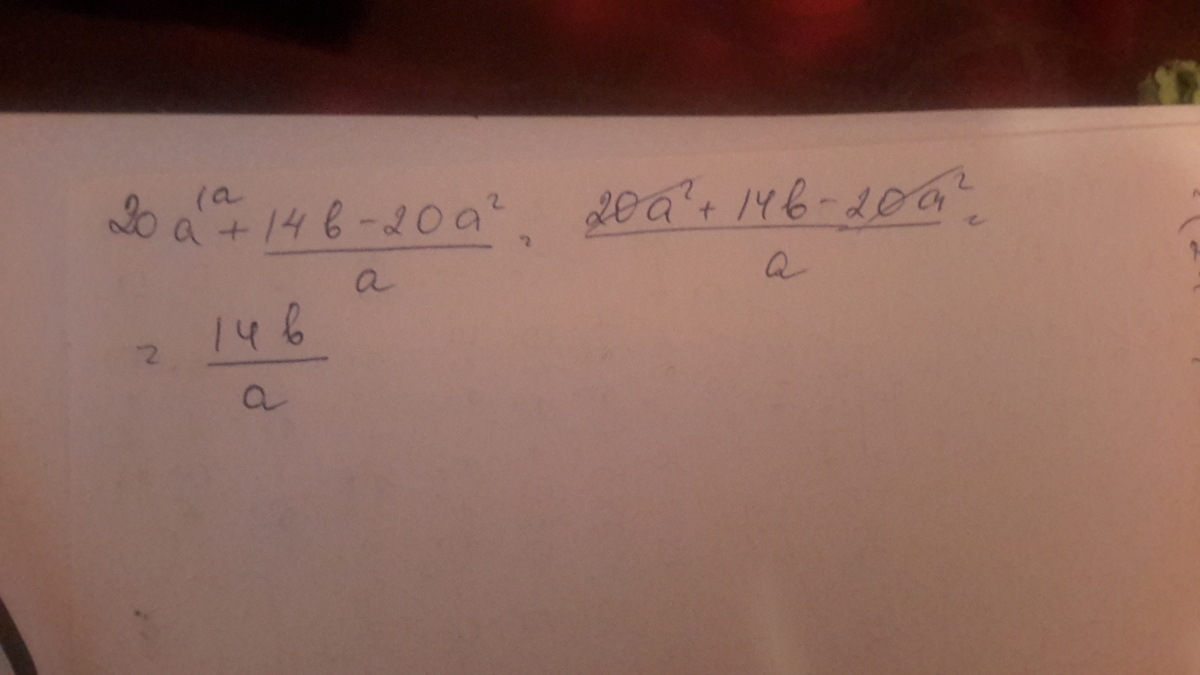 20a^{\a} + \frac{14b - 20a²}{a} = \frac{20a² + 14b - 20a²}{a} =
= \frac{14b}{a}